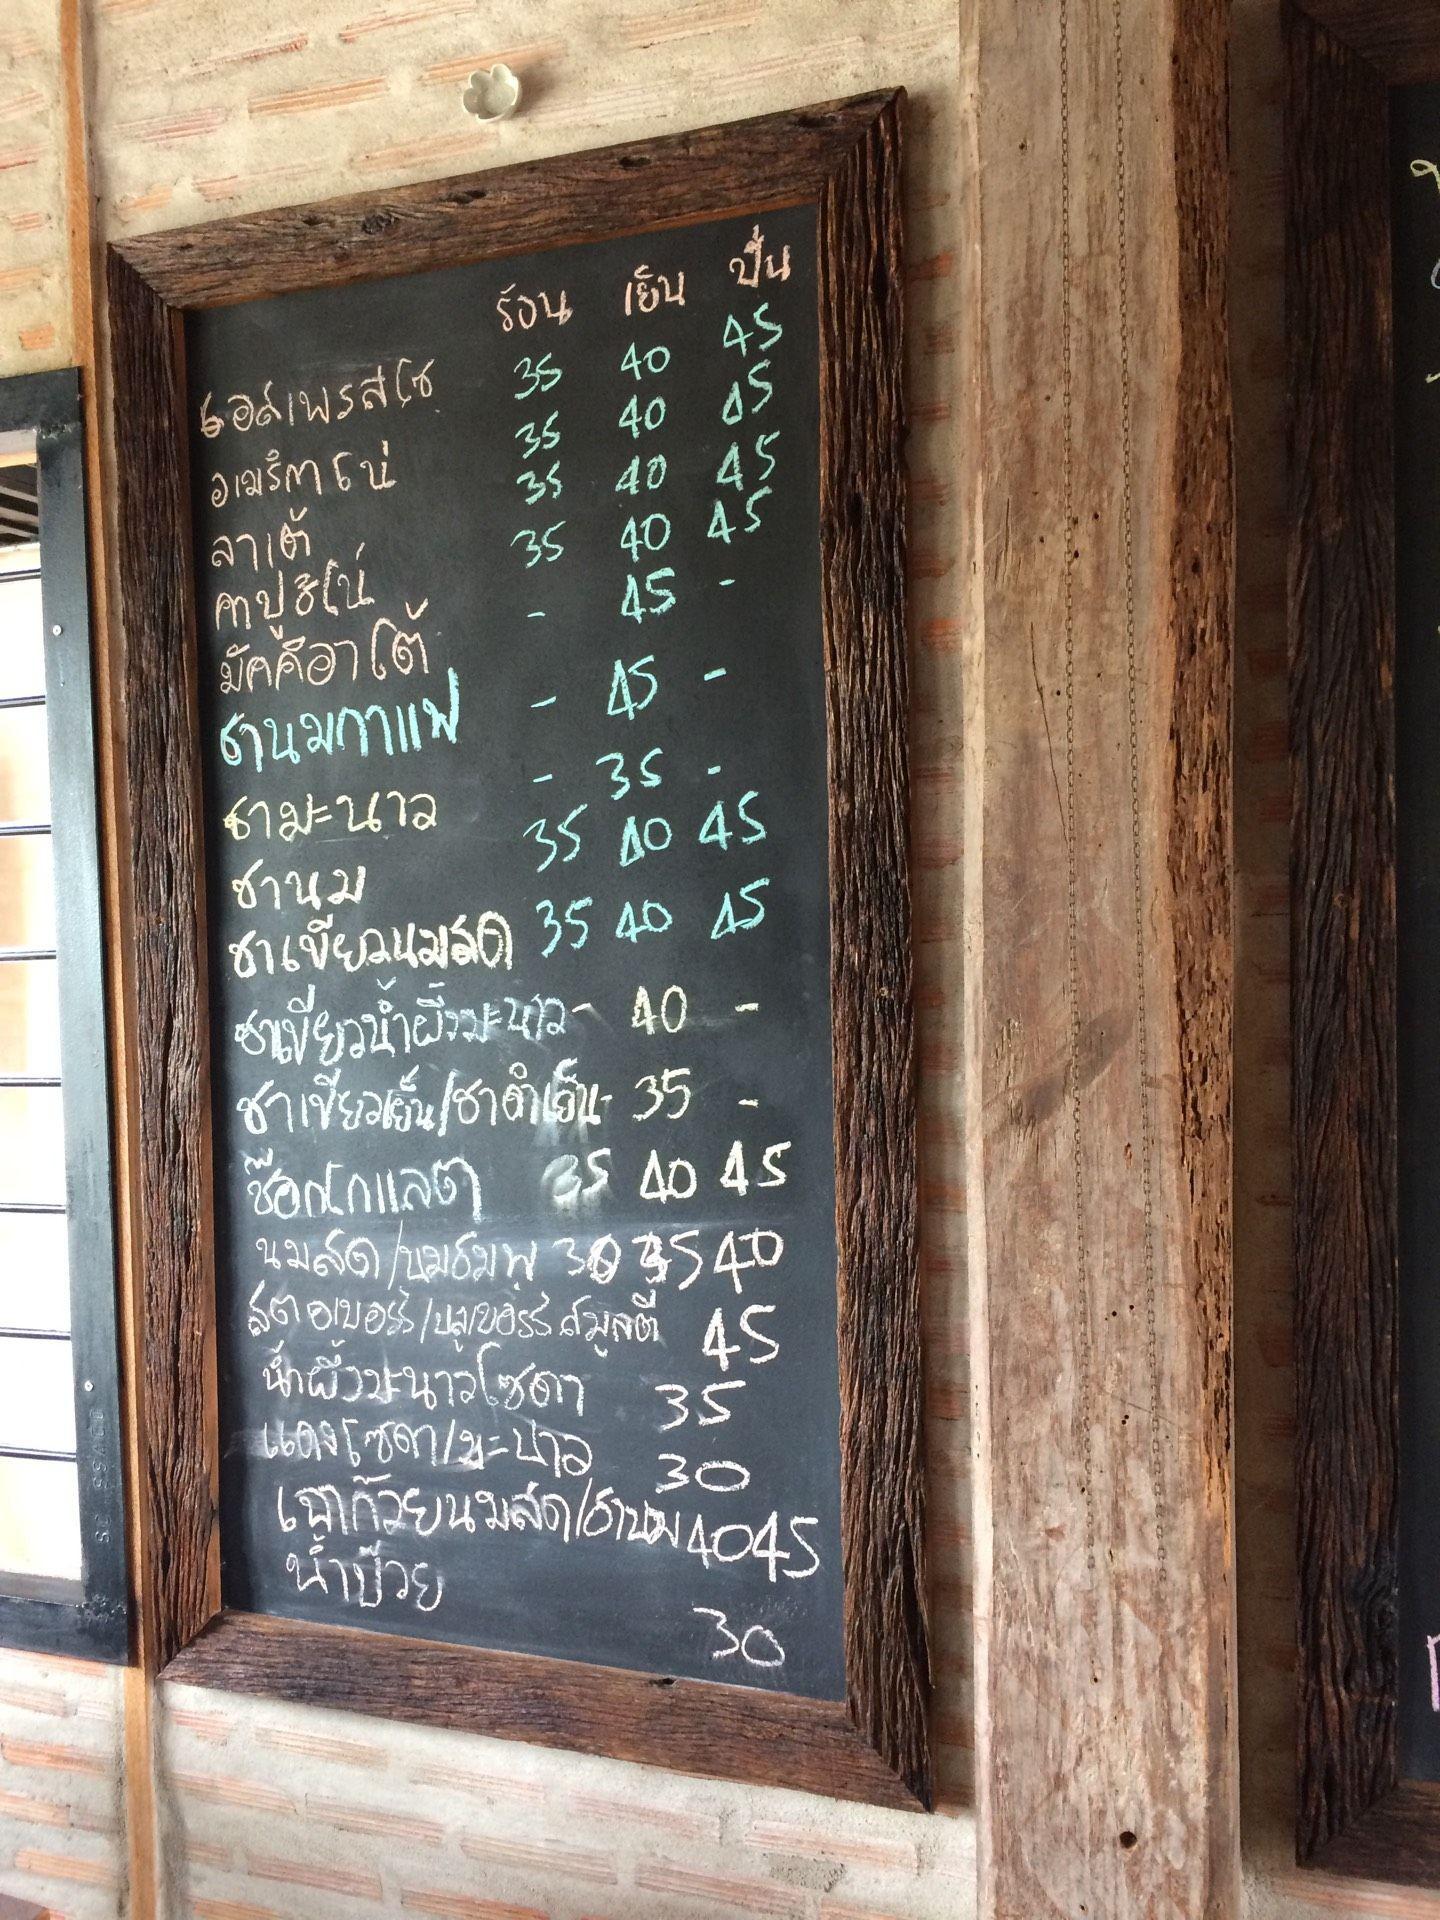 ร้อน เย็น ปั่น
เอสเพรสโซ 35 40 45
อเมริกาโน่ 35 40 45
ลาเต้ 35 40 45
คาปูชิโน่ 35 40 45
มัคคิอาโต้ - 45 -
ชานมกาแฟ - 45 -
ชามะนาว - 35 -
ชานม 35 40 45
ชาเขียวนมสด 35 40 45
ชาเขียวน้ำผึ้งมะนาว - 40 -
ชาเขียวเย็น/ชาดำเย็น - 35 -
ช๊อกโกแลต 35 40 45
นมสด/นมชมพู 30 35 40
สตอเบอร์รี่/บลูเบอร์รี่สมูสตี 45
น้ำผึ้งมะนาวโซดา 35
แดงโซดา/มะนาว 30
เฉาก๊วยนมสด/ชานม 40 45
น้ำบ๊วย 30